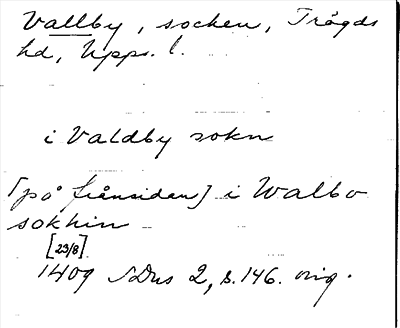 Vallby, socken, Trögds
hd, Upps. l.
i Valdby sokn
[på frånsidan] i Walbo
sokhin
[23/8]
1409 SDns 2, s. 146. orig.